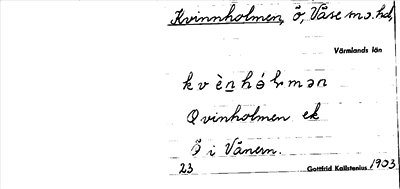 Kvinnholmen, ö, Väse sn o. hd,
Värmlands län
Qvinholmen ek
Ö i Vänern.
23 Gottfrid Kallstenius 1903